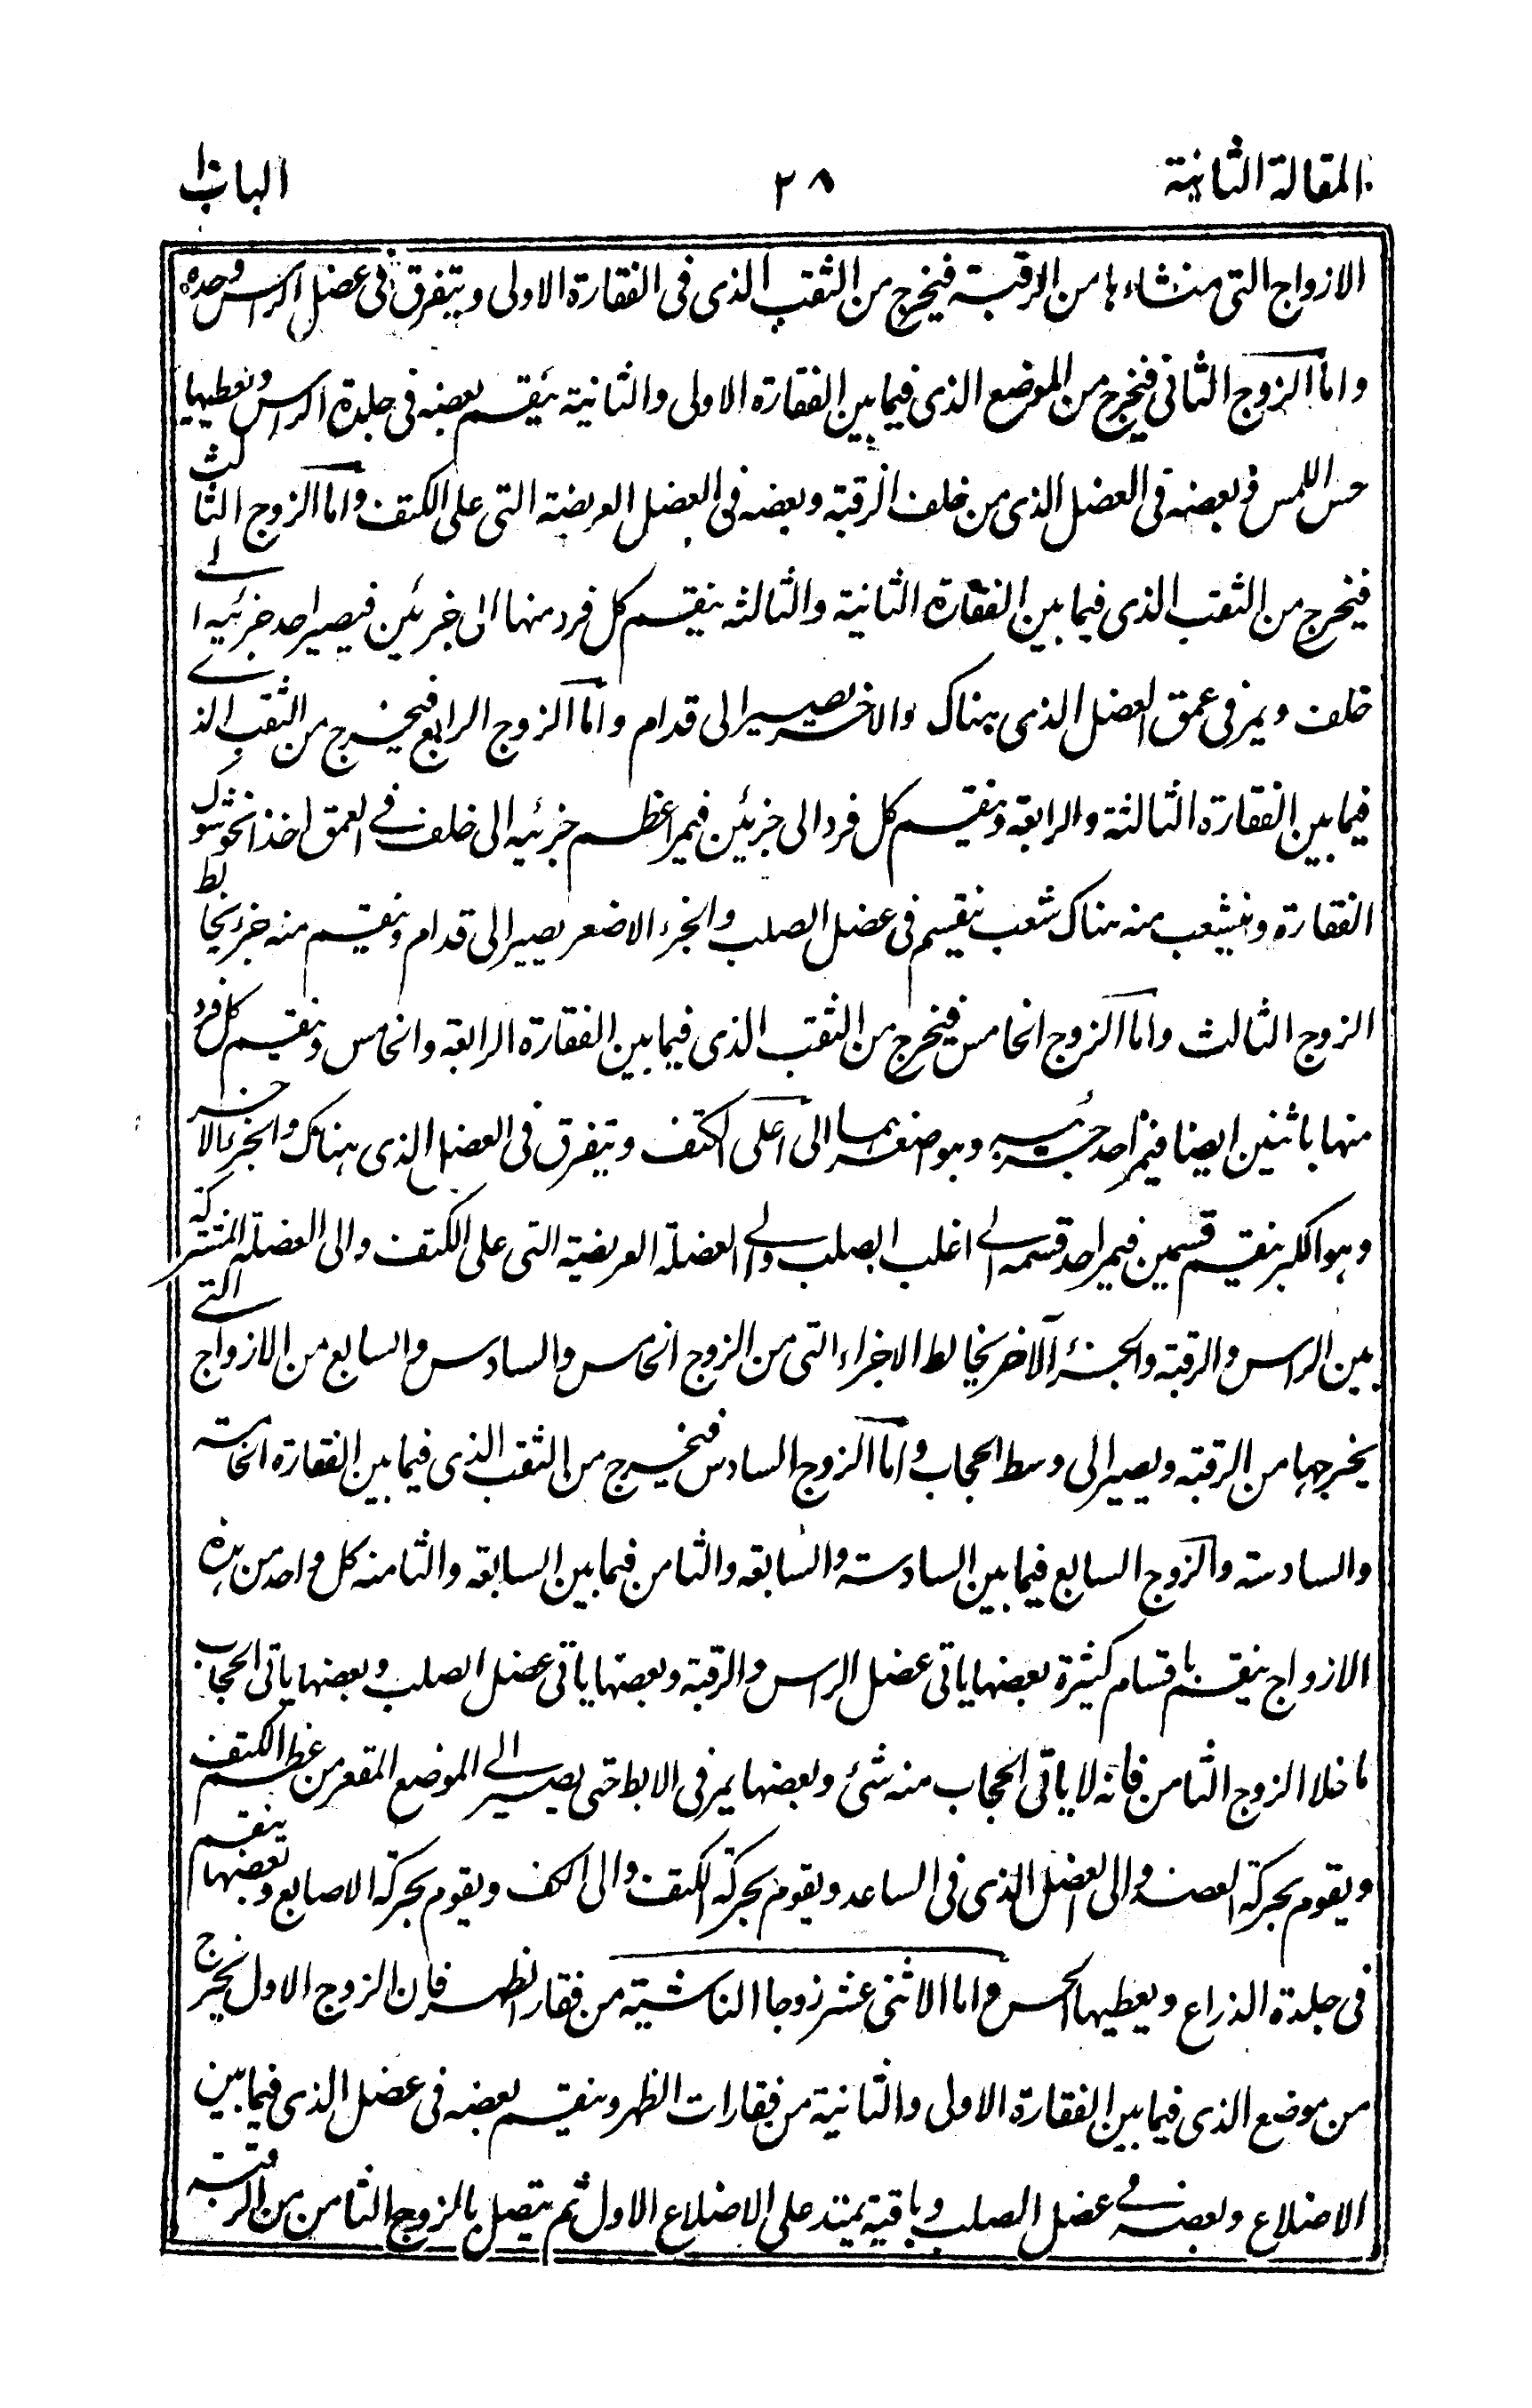 المقالة الثانية ٢٨ الباب ١
الازواج التى منشاءها من الرقبة فيخرج من الثقب الذى فى الفقارة الاولى ويتفرق فى عضل الراس وحده
واما الزوج الثانى فيخرج من الموضع الذى فيما بين الفقارة الاولى والثانية ينقسم بعضه فى جلدة الراس ويعطيها
حس اللمس وبعضه فى العضل الذى من خلف الرقبة وبعضه فى العضل العريضة التى على الكتف واما الزوج الثالث
فيخرج من الثقب الذى فيما بين الفقارة الثانية والثالثه ينقسم كل فرد منها الى جزئين فيصير احد جزئيه الى
خلف ويمر فى عمق العضل الذى هناك والاخر يصير الى قدام واما الزوج الرابع فيخرج من الثقب الذى
فيما بين الفقارة الثالثة والرابعة وينقسم كل فرد الى جزئين فيمر اعظم جزئيه الى خلف فى العمق اخذا نحو شوك
الفقارة وينشعب منه هناك شعب ينقسم فى عضل الصلب والجزء الاصغر يصير الى قدام وينقسم منه جزء يخالط
الزوج الثالث واما الزوج الخامس فيخرج من الثقب الذى فيما بين الفقارة الرابعة والخامس وينقسم كل فرد
منها باثنين ايضا فيمر احد جزئيه وهو اصغرهما الى اعلى الكتف ويتفرق فى العضل الذى هناك والجزء الاخر
وهو اكبر ينقسم قسمين فيمر احد قسمه الى اغلب الصلب والى العضلة العريضة التى على الكتف والى العضلة المشتركة
بين الراس والرقبة والجزء الآخر يخالط الاجزاء التى من الزوج الخامس والسادس والسابع من الازواج التى
يخرجها من الرقبة ويصير الى وسط الحجاب واما الزوج السادس فيخرج من الثقب الذى فيما بين الفقارة الخامسة
والسادسة والزوج السابع فيما بين السادسة والسابعه والثامن فيما بين السابعه والثامنه كل واحد من هذه
الازواج ينقسم باقسام كثيرة بعضها ياتى عضل الراس والرقبة وبعضها ياتى عضل الصلب وبعضها ياتى الحجاب
ما خلا الزوج الثامن فانه لا ياتى الحجاب منه شئ وبعضها يمر فى الابط حتى يصير الى الموضع المقعر من عظم الكتف
ويقوم بحركة العضد والى العضل الذى فى الساعد ويقوم بحركة الكتف والى الكف ويقوم بحركة الاصابع وبعضها ينقسم
فى جلدة الذراع ويعطيها الحس واما الاثنى عشر زوجا الناشية من فقار الظهر فان الزوج الاول يخرج
من موضع الذى فيما بين الفقارة الاولى والثانية من فقارات الظهر وينقسم بعضه فى عضل الذى فيما بين
الاضلاع وبعضه فى عضل الصلب وباقيه يمتد على الاضلاع الاول ثم يتصل بالزوج الثامن من الرقبة